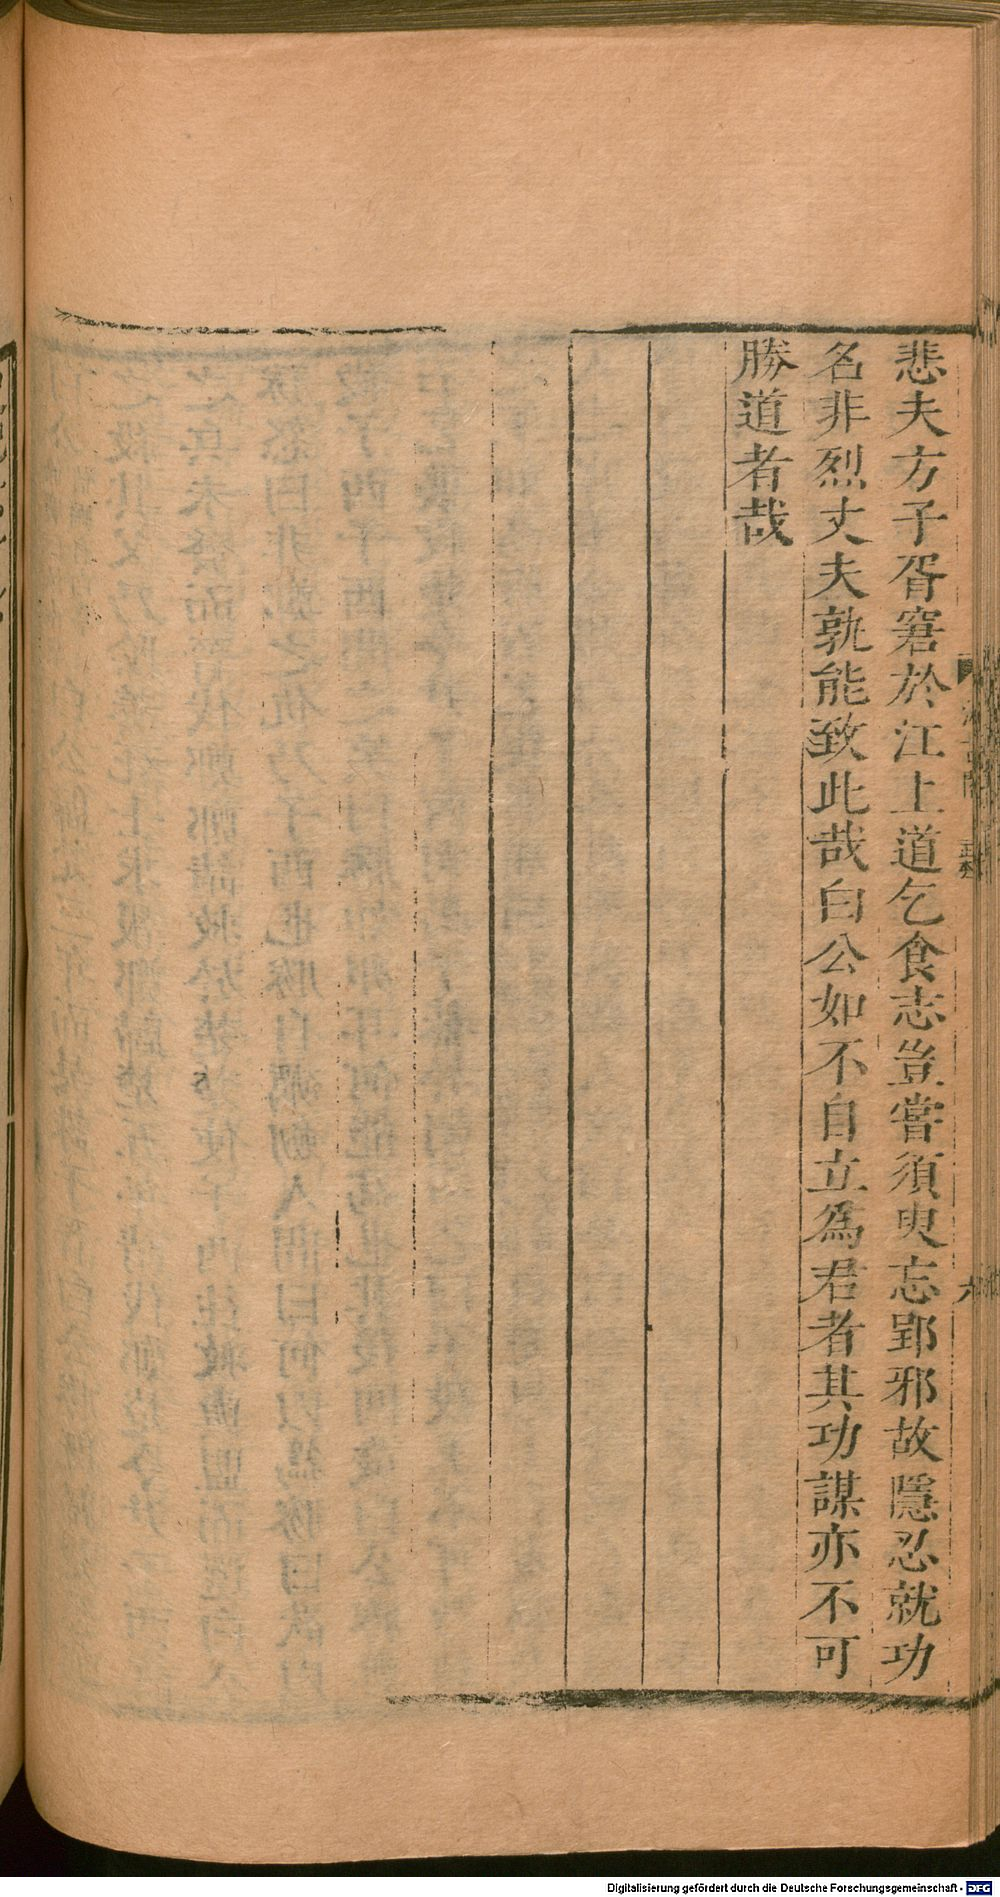 悲夫方子胥窘於江上道乞食志豈嘗須臾忘郢邪故隱忍就功
名非烈丈夫孰能致此哉白公如不自立為君者其功謀亦不可
勝道者哉
六
Digitalisierung gefördert durch die Deutsche Forschungsgemeinschaft - DFG